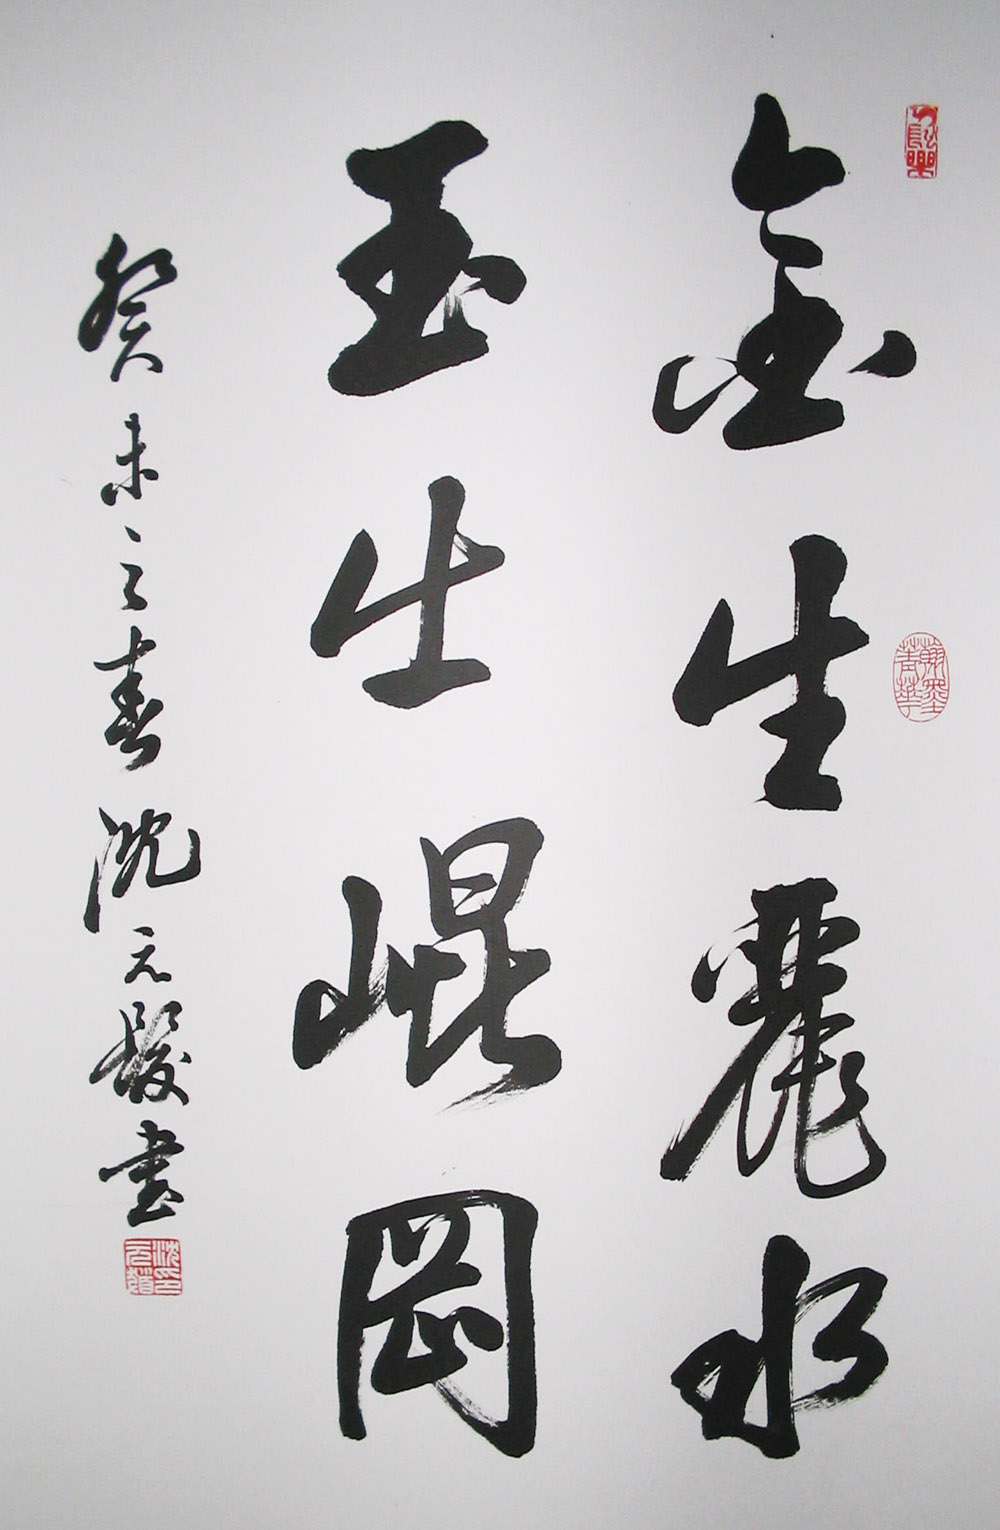 金生麗水
玉出崐岡
癸未之春沈元發書
翰墨菁華